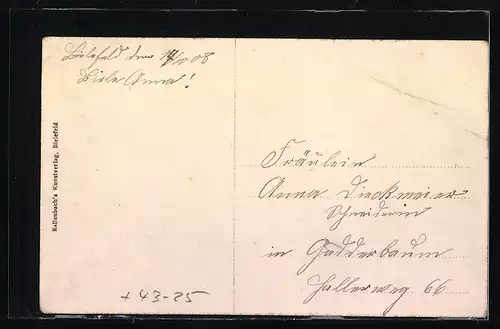 Bielefeld den 14/10 08
Liebe Anna!
Kellenbach's Kunstverlag, Bielefeld
Fräulein
Anna Dieckmeier
Schneiderin
in Gadderbaum
Hallerweg 66
+ 43-25